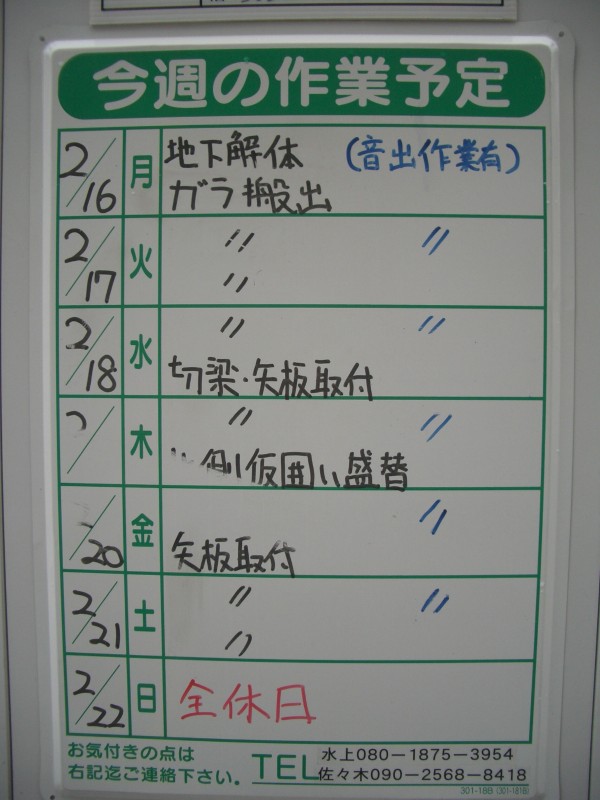 今週の作業予定
2/16 月 地下解体 (音出作業有)
ガラ搬出
2/17 火 〃 〃
〃
2/18 水 〃 〃
切梁・矢板取付
木 〃 〃
側仮囲い盛替
/20 金 〃
矢板取付
2/21 土 〃 〃
〃
2/22 日 全休日
お気付きの点は
右記迄ご連絡下さい。
TEL
水上080-1875-3954
佐々木090-2568-8418
301-18B (301-181B)